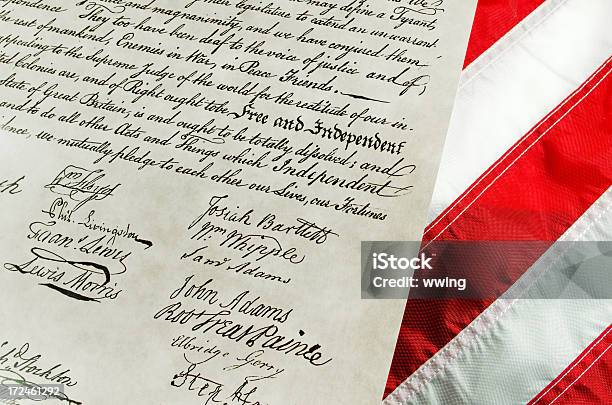 may define a Tyrant,
pendence. They too have been deaf to the voice of justice and of
and magnanimity, and we have conjured them
their legislature to extend an unwarrant
the rest of mankind, Enemies in War, in Peace Friends.
appealing to the Supreme Judge of the world for the rectitude of our in
ted Colonies are, and of Right ought to be Free and Independent
State of Great Britain, is and ought to be totally dissolved; and
and to do all other Acts and Things which Independent
dence, we mutually pledge to each other our Lives, our Fortunes
Wm Floyd
Phil. Livingston
Frans. Lewis
Lewis Morris
Josiah Bartlett
Wm Whipple
Saml Adams
John Adams
Robt Treat Paine
Elbridge Gerry
Step
Stockton
iStock
Credit: wwing
172461292